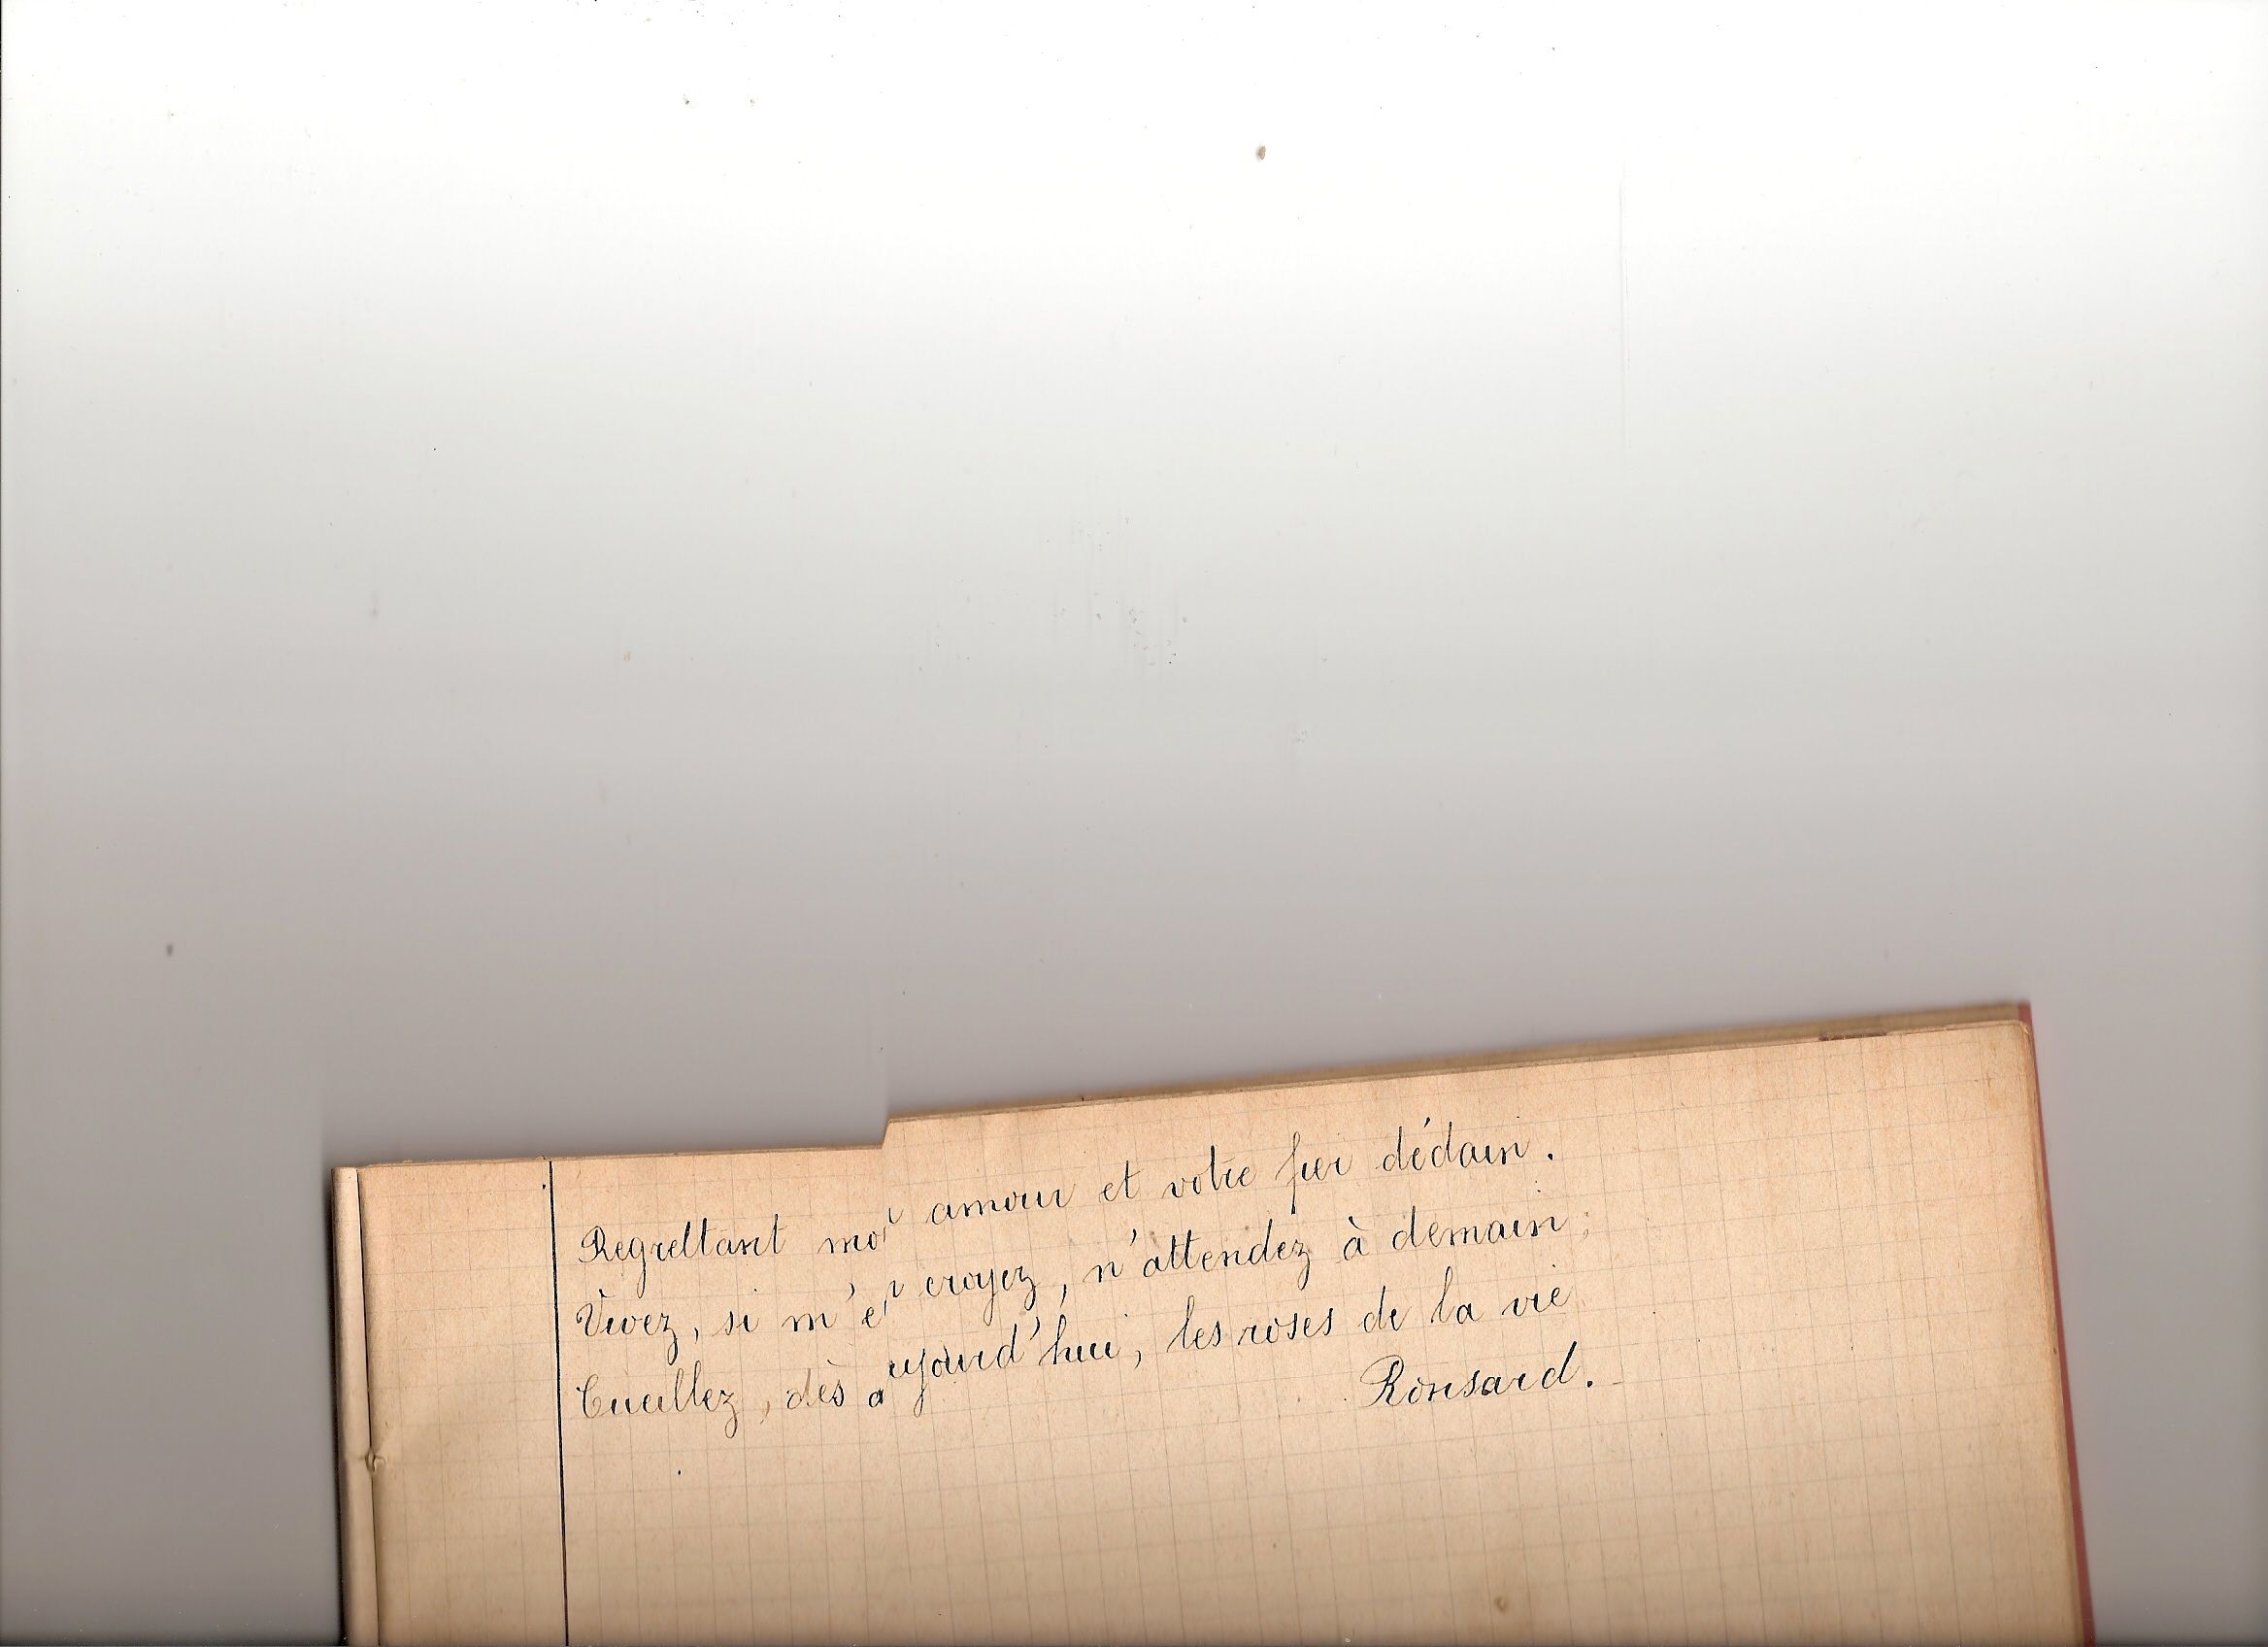 Regrettant mon amour et votre fier dédain.
Vivez, si m'en croyez, n'attendez à demain;
Cueillez, dès aujourd'hui, les roses de la vie
Ronsard.